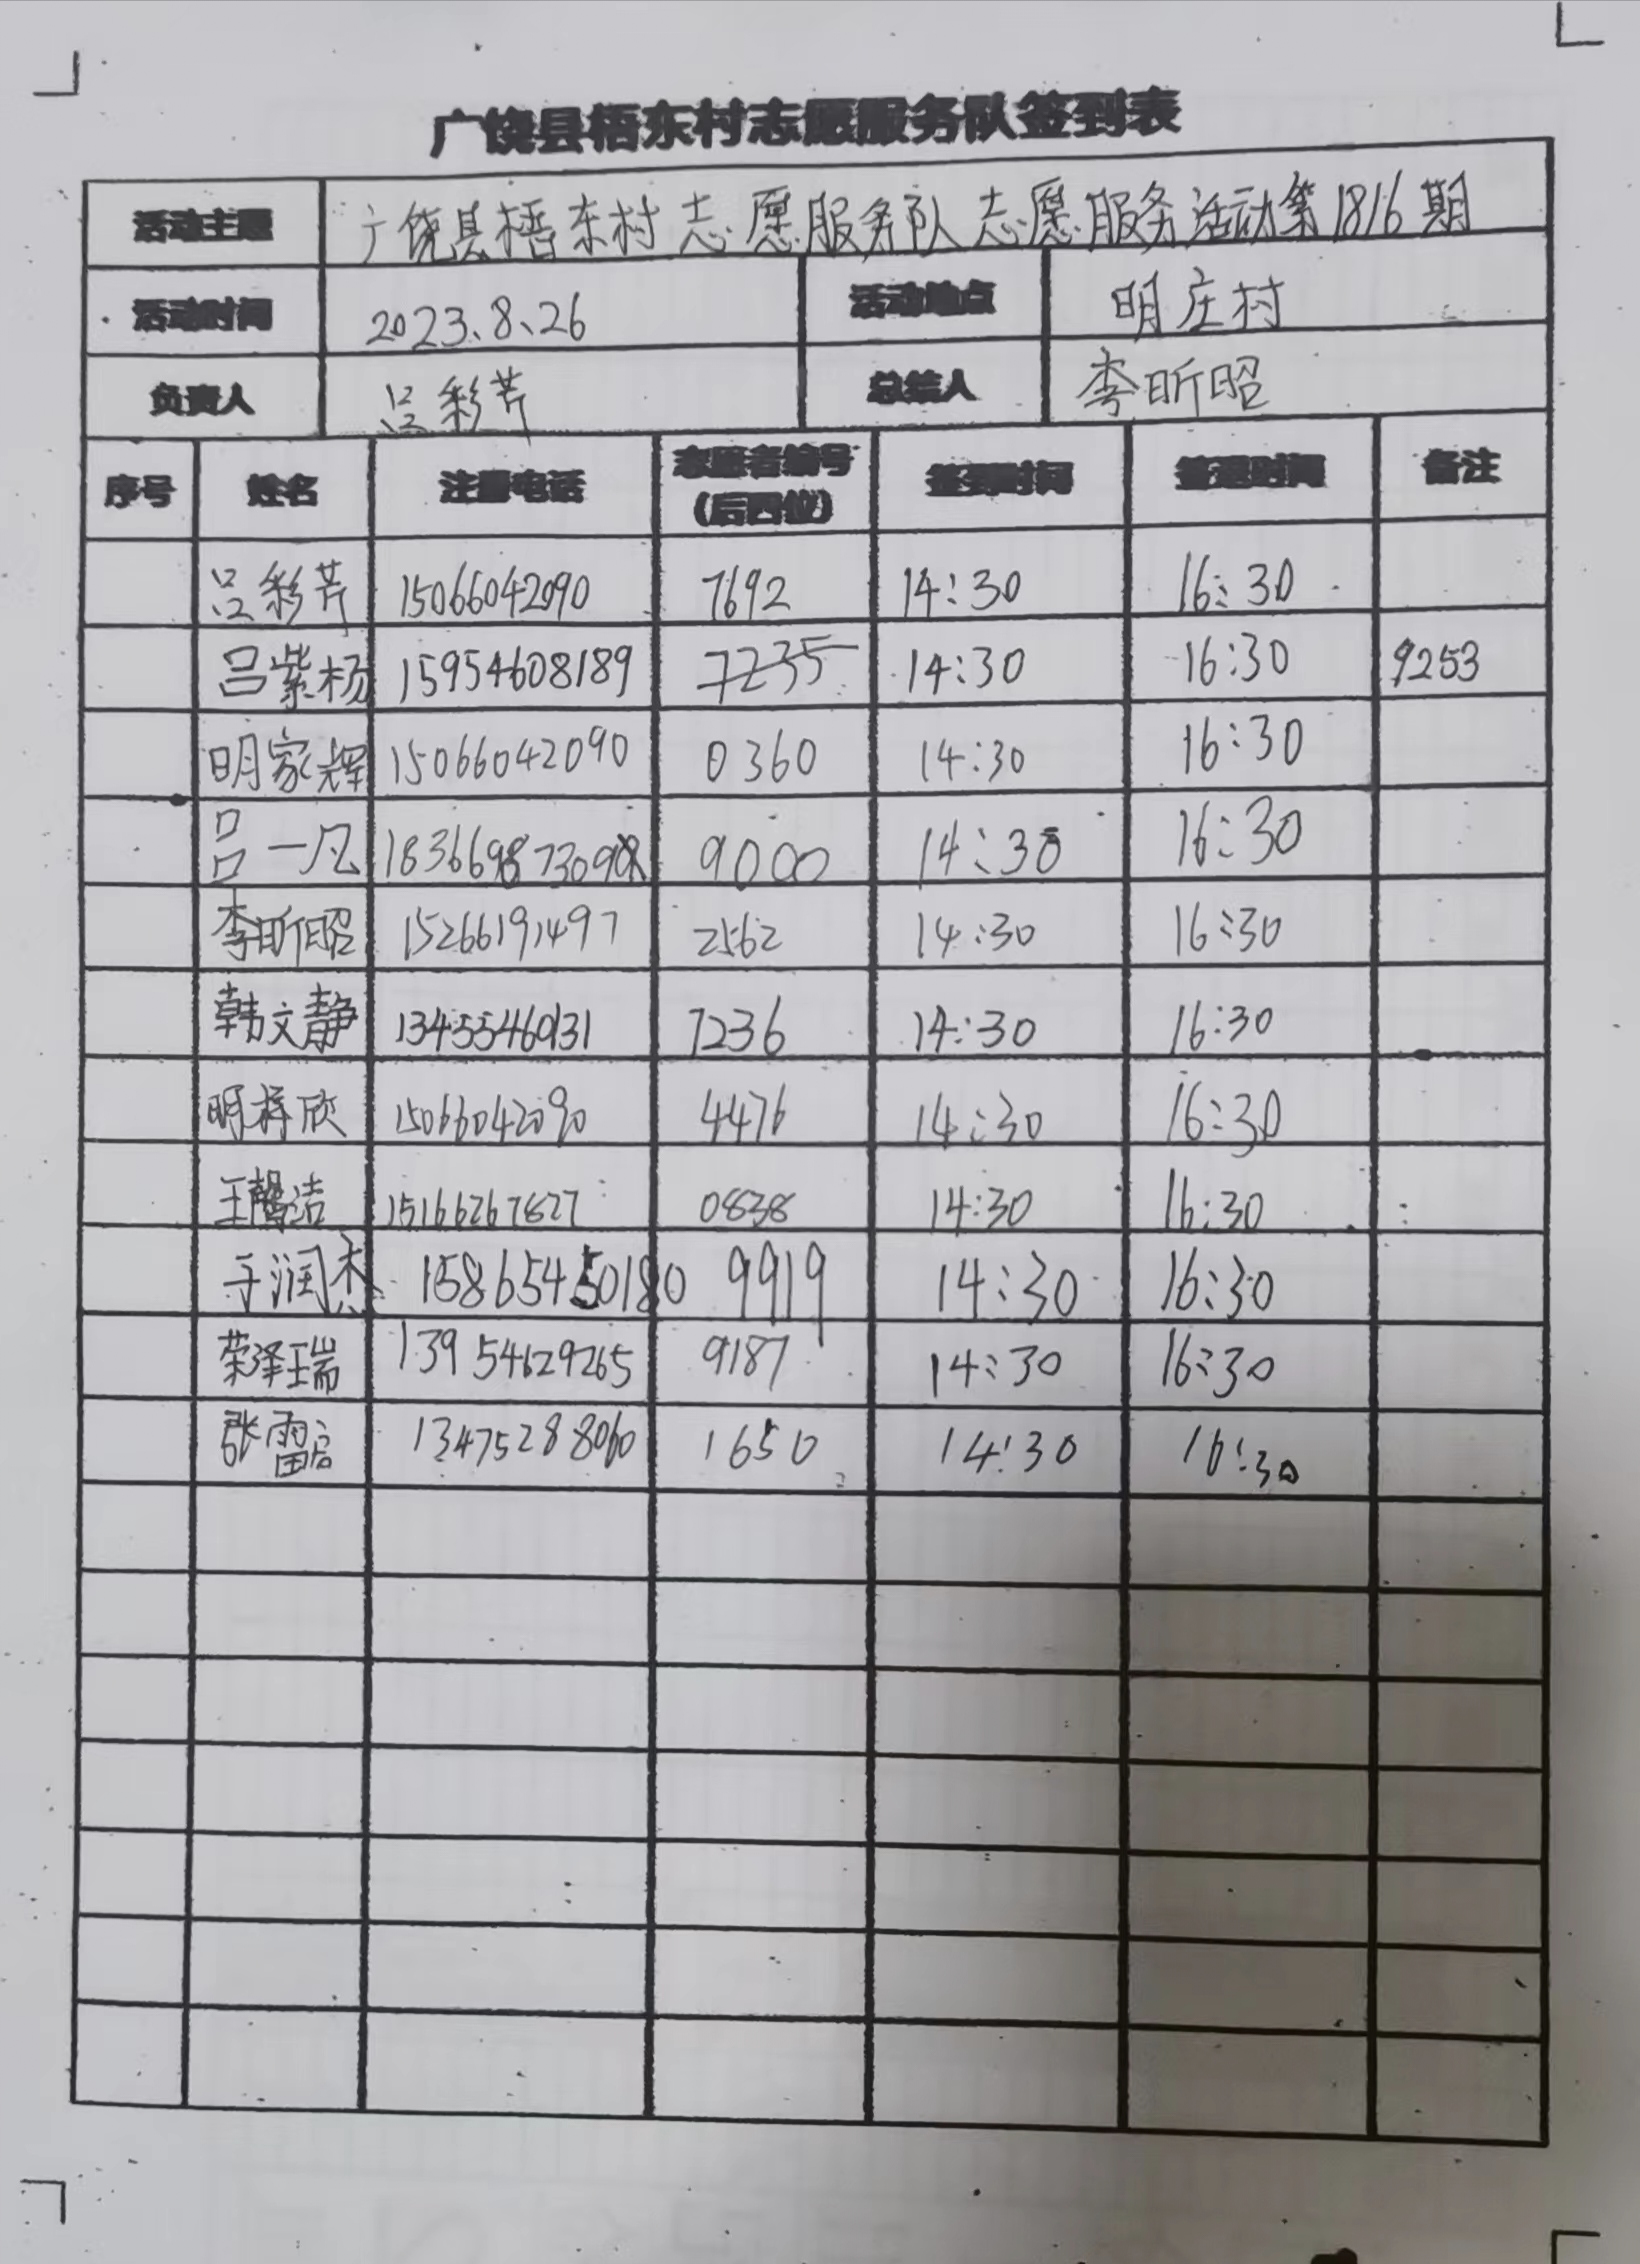 广饶县梧东村志愿服务队签到表
活动主题 广饶县梧东村志愿服务队志愿服务活动第1816期
活动时间 2023.8.26 活动地点 明庄村
负责人 吕彩芹 总结人 李昕昭
序号 姓名 注册电话 志愿者编号（后四位） 签到时间 签退时间 备注
吕彩芹 15066042090 7692 14:30 16:30
吕紫杨 15954608189 7235 14:30 16:30 9253
明家辉 15066042090 0360 14:30 16:30
吕一凡 9000 14:30 16:30
李昕昭 15266191497 2562 14:30 16:30
韩文静 13455460131 7236 14:30 16:30
明梓欣 15066042090 4476 14:30 16:30
王馨洁 15166267827 0838 14:30 16:30
于润杰 15865450180 9919 14:30 16:30
荣泽瑞 13954629265 9187 14:30 16:30
张雷 13475288060 1650 14:30 16:30